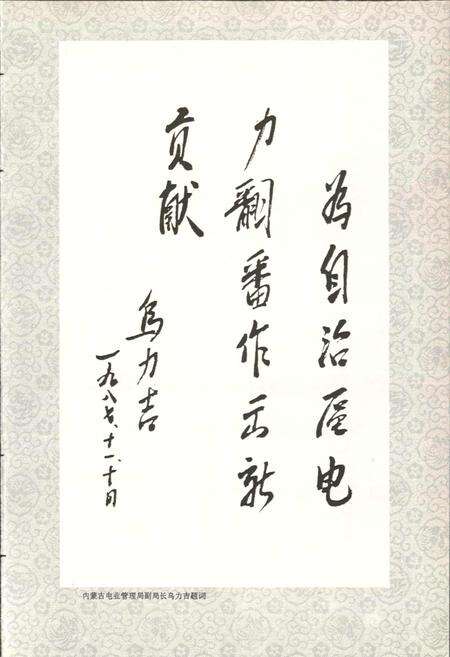 为自治区电
力翻番作出新
贡献
乌力吉
一九八七、十一、十日
内蒙古电业管理局副局长乌力吉题词